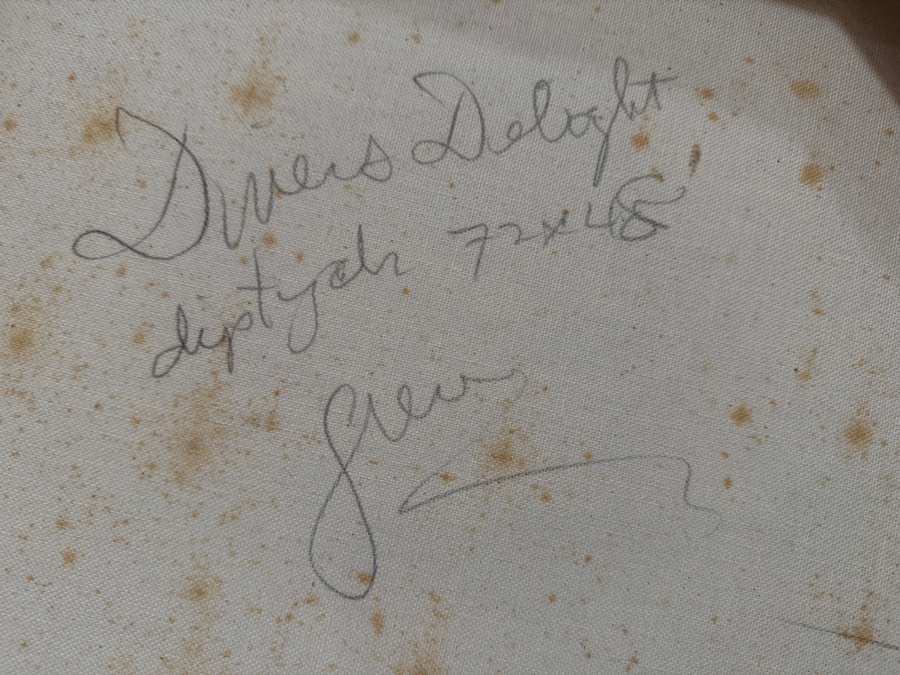 Divers Delight
diptych 72x48